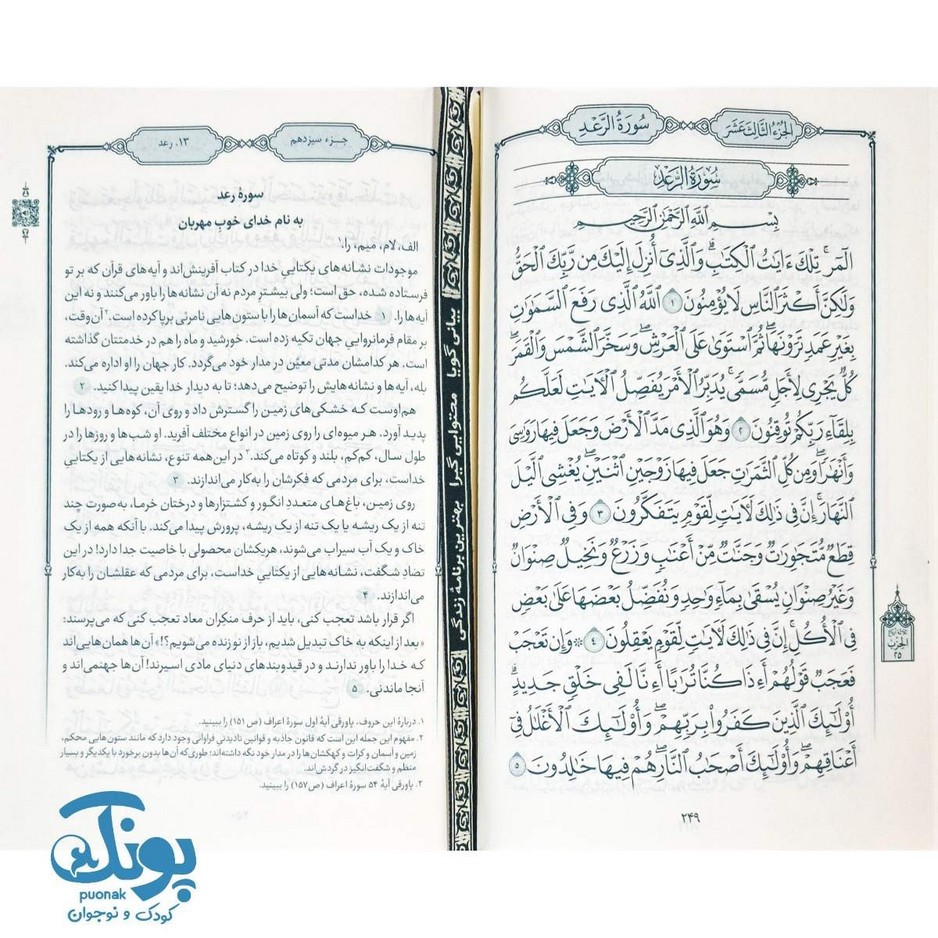 الجُزءُ الثّالِث عَشَر
سُورَةُ الرَّعْدِ
سُورَةُ الرَّعْدِ
بِسْمِ ٱللَّهِ ٱلرَّحْمَٰنِ ٱلرَّحِيمِ
الٓمٓر ۚ تِلْكَ ءَايَٰتُ ٱلْكِتَٰبِ ۗ وَٱلَّذِىٓ أُنزِلَ إِلَيْكَ مِن رَّبِّكَ ٱلْحَقُّ
وَلَٰكِنَّ أَكْثَرَ ٱلنَّاسِ لَا يُؤْمِنُونَ ١ ٱللَّهُ ٱلَّذِى رَفَعَ ٱلسَّمَٰوَٰتِ
بِغَيْرِ عَمَدٍ تَرَوْنَهَا ۖ ثُمَّ ٱسْتَوَىٰ عَلَى ٱلْعَرْشِ ۖ وَسَخَّرَ ٱلشَّمْسَ وَٱلْقَمَرَ ۖ
كُلٌّ يَجْرِى لِأَجَلٍ مُّسَمًّى ۚ يُدَبِّرُ ٱلْأَمْرَ يُفَصِّلُ ٱلْءَايَٰتِ لَعَلَّكُم
بِلِقَآءِ رَبِّكُمْ تُوقِنُونَ ٢ وَهُوَ ٱلَّذِى مَدَّ ٱلْأَرْضَ وَجَعَلَ فِيهَا رَوَٰسِىَ
وَأَنْهَٰرًا ۖ وَمِن كُلِّ ٱلثَّمَرَٰتِ جَعَلَ فِيهَا زَوْجَيْنِ ٱثْنَيْنِ ۖ يُغْشِى ٱلَّيْلَ
ٱلنَّهَارَ ۚ إِنَّ فِى ذَٰلِكَ لَءَايَٰتٍ لِّقَوْمٍ يَتَفَكَّرُونَ ٣ وَفِى ٱلْأَرْضِ
قِطَعٌ مُّتَجَٰوِرَٰتٌ وَجَنَّٰتٌ مِّنْ أَعْنَٰبٍ وَزَرْعٌ وَنَخِيلٌ صِنْوَانٌ
وَغَيْرُ صِنْوَانٍ يُسْقَىٰ بِمَآءٍ وَٰحِدٍ وَنُفَضِّلُ بَعْضَهَا عَلَىٰ بَعْضٍ
فِى ٱلْأُكُلِ ۚ إِنَّ فِى ذَٰلِكَ لَءَايَٰتٍ لِّقَوْمٍ يَعْقِلُونَ ٤ ۞ وَإِن تَعْجَبْ
فَعَجَبٌ قَوْلُهُمْ أَءِذَا كُنَّا تُرَٰبًا أَءِنَّا لَفِى خَلْقٍ جَدِيدٍ ۗ
أُو۟لَٰٓئِكَ ٱلَّذِينَ كَفَرُوا۟ بِرَبِّهِمْ ۖ وَأُو۟لَٰٓئِكَ ٱلْأَغْلَٰلُ فِىٓ
أَعْنَاقِهِمْ ۖ وَأُو۟لَٰٓئِكَ أَصْحَٰبُ ٱلنَّارِ ۖ هُمْ فِيهَا خَٰلِدُونَ ٥
الحِزب
٢٥
٢٤٩
بیانی گویا محتوایی گیرا بهترین برنامهٔ زندگی
جـزء سیزدهم
۱۳. رعد
سورهٔ رعد
به نام خدای خوب مهربان
الف، لام، میم، را.۱
موجودات نشانه‌های یکتایی خدا در کتاب آفرینش‌اند و آیه‌های قرآن که بر تو
فرستاده شده، حق است؛ ولی بیشتر مردم نه آن نشانه‌ها را باور می‌کنند و نه این
آیه‌ها را. ۱ خداست که آسمان‌ها را با ستون‌هایی نامرئی برپا کرده است.۲ آن وقت،
بر مقام فرمانروایی جهان تکیه زده است. خورشید و ماه را هم در خدمتتان گذاشته
است. هر کدامشان مدتی معیّن در مدار خود می‌گردد. کار جهان را او اداره می‌کند.
بله، آیه‌ها و نشانه‌هایش را توضیح می‌دهد؛ تا به دیدار خدا یقین پیدا کنید. ۲
هم اوست کـه خشکی‌های زمین را گسترش داد و روی آن، کوه‌ها و رودها را
پدید آورد. هـر میوه‌ای را روی زمین در انواع مختلف آفرید. او شب‌ها و روزها را در
طول سال، کم‌کم، بلند و کوتاه می‌کند.۳ در این همه تنوع، نشانه‌هایی از یکتایی
خداست، برای مردمی که فکرشان را به‌کار می‌اندازند. ۳
روی زمیـن، باغ‌های متعددِ انگـور و کشتزارهـا و درختان خرمـا، به‌صورت چند
تنه از یک ریشه یا یک تنه از یک ریشه، پرورش پیدا می‌کند. با آنکه همه از یک
خاک و یک آب سیراب می‌شوند، هریکشان محصولی با خاصیت جدا دارد! در این
تضادِ شگفت، نشانه‌هایی از یکتاییِ خداست، برای مردمی که عقلشان را به‌کار
می‌اندازند. ۴
اگر قرار باشد تعجب کنی، باید از حرف منکران معاد تعجب کنی که می‌پرسند:
«بعد از اینکه به خاک تبدیل شدیم، باز از نو زنده می‌شویم؟!» آن‌ها همان‌هایی‌اند
کـه خـدا را باور ندارنـد و در قیدوبندهای دنیای مادی اسیرند! آن‌ها جهنمی‌اند و
آنجا ماندنی. ۵
۱. دربارهٔ این حروف، پاورقی آیهٔ اول سورهٔ اعراف (ص ۱۵۱) را ببینید.
۲. مفهوم این جمله این است که قانون جاذبه و قوانین نادیدنی فراوانی وجود دارد که مانند ستون‌هایی محکم،
زمین و آسمان و کرات و کهکشان‌ها را در مدار خود نگه داشته‌اند؛ طوری‌که آن‌ها بدون برخورد با یکدیگر و بسیار
منظم و شگفت‌انگیز در گردش‌اند.
۳. پاورقی آیهٔ ۵۴ سورهٔ اعراف (ص ۱۵۷) را ببینید.
پونک
puonak
کودک و نوجوان